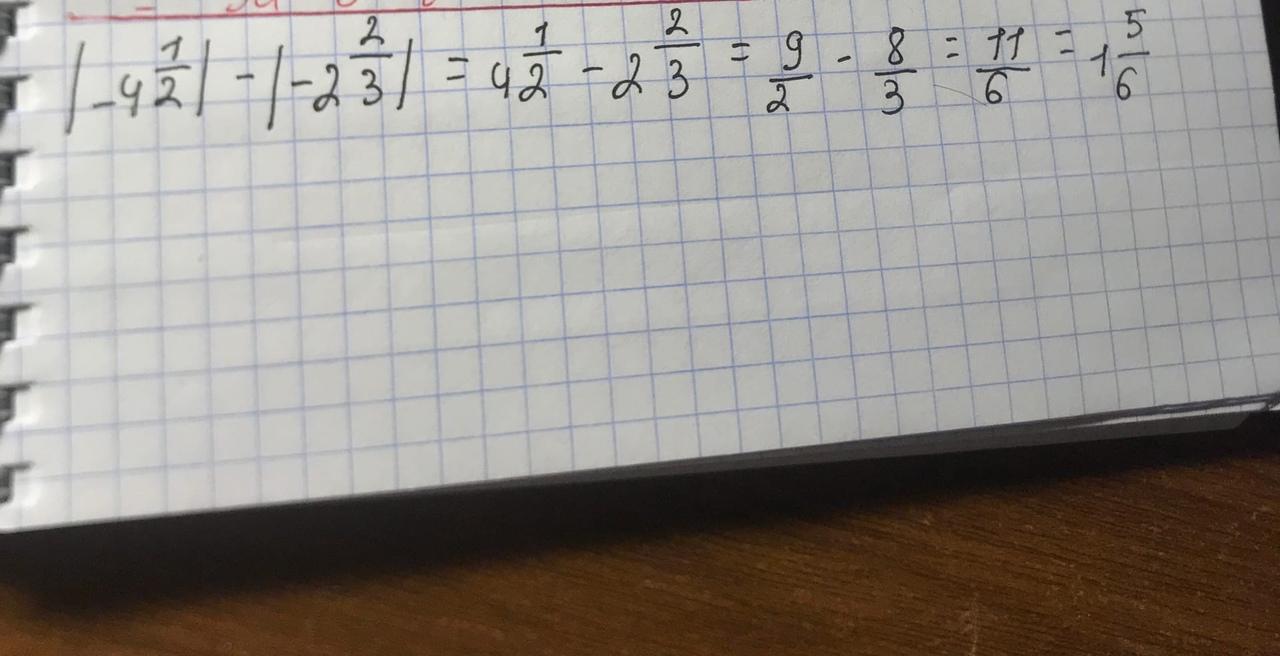 |-4 1/2| - |-2 2/3| = 4 1/2 - 2 2/3 = 9/2 - 8/3 = 11/6 = 1 5/6